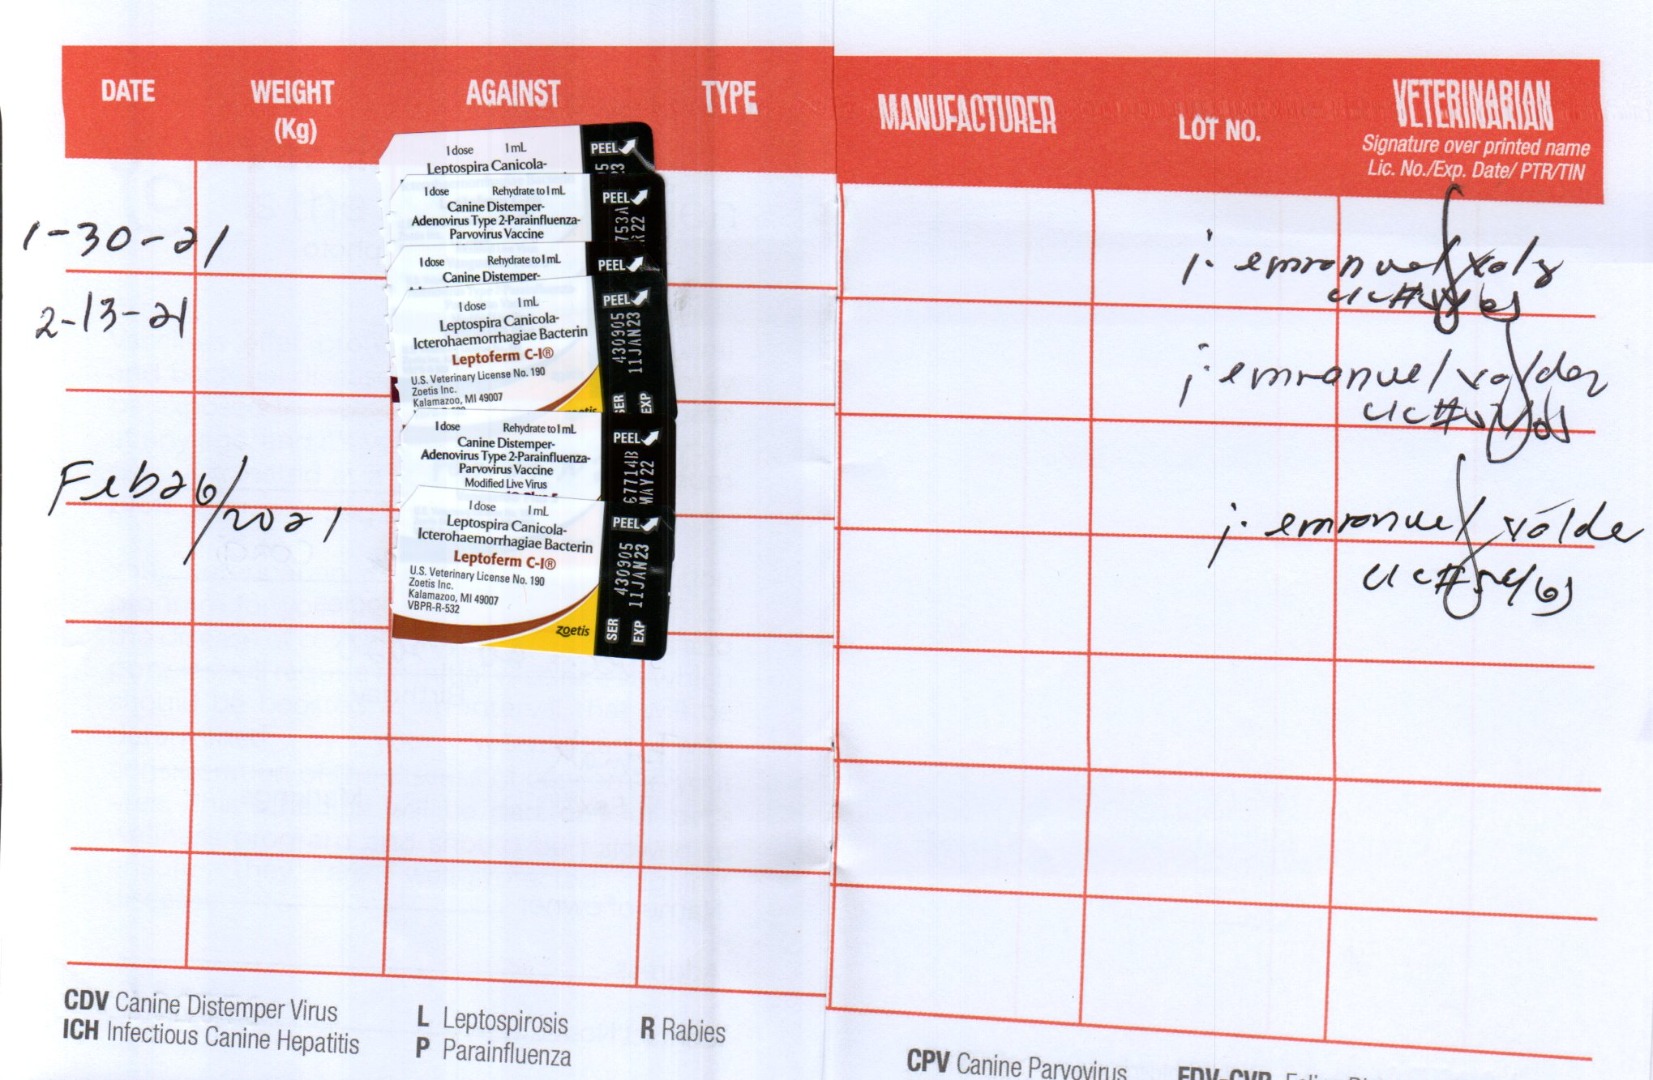 DATE
WEIGHT
(Kg)
AGAINST
TYPE
MANUFACTURER
LOT NO.
VETERINARIAN
Signature over printed name
Lic. No./Exp. Date/ PTR/TIN
1 dose 1 mL
Leptospira Canicola-
PEEL
1 dose Rehydrate to 1 mL
Canine Distemper-
Adenovirus Type 2-Parainfluenza-
Parvovirus Vaccine
PEEL
753A
22
1-30-21
1 dose Rehydrate to 1 mL
Canine Distemper-
PEEL
2-13-21
1 dose 1 mL
Leptospira Canicola-
Icterohaemorrhagiae Bacterin
Leptoferm C-I®
U.S. Veterinary License No. 190
Zoetis Inc.
Kalamazoo, MI 49007
PEEL
SER 430905
EXP 11JAN23
1 dose Rehydrate to 1 mL
Canine Distemper-
Adenovirus Type 2-Parainfluenza-
Parvovirus Vaccine
Modified Live Virus
PEEL
67714B
MAY22
Feb 26/
2021
1 dose 1 mL
Leptospira Canicola-
Icterohaemorrhagiae Bacterin
Leptoferm C-I®
U.S. Veterinary License No. 190
Zoetis Inc.
Kalamazoo, MI 49007
VBPR-R-532
zoetis
PEEL
SER 430905
EXP 11JAN23
j. emmanuel
j. emmanuel valdez
j. emmanuel valde
CDV Canine Distemper Virus
ICH Infectious Canine Hepatitis
L Leptospirosis
P Parainfluenza
R Rabies
CPV Canine Parvovirus